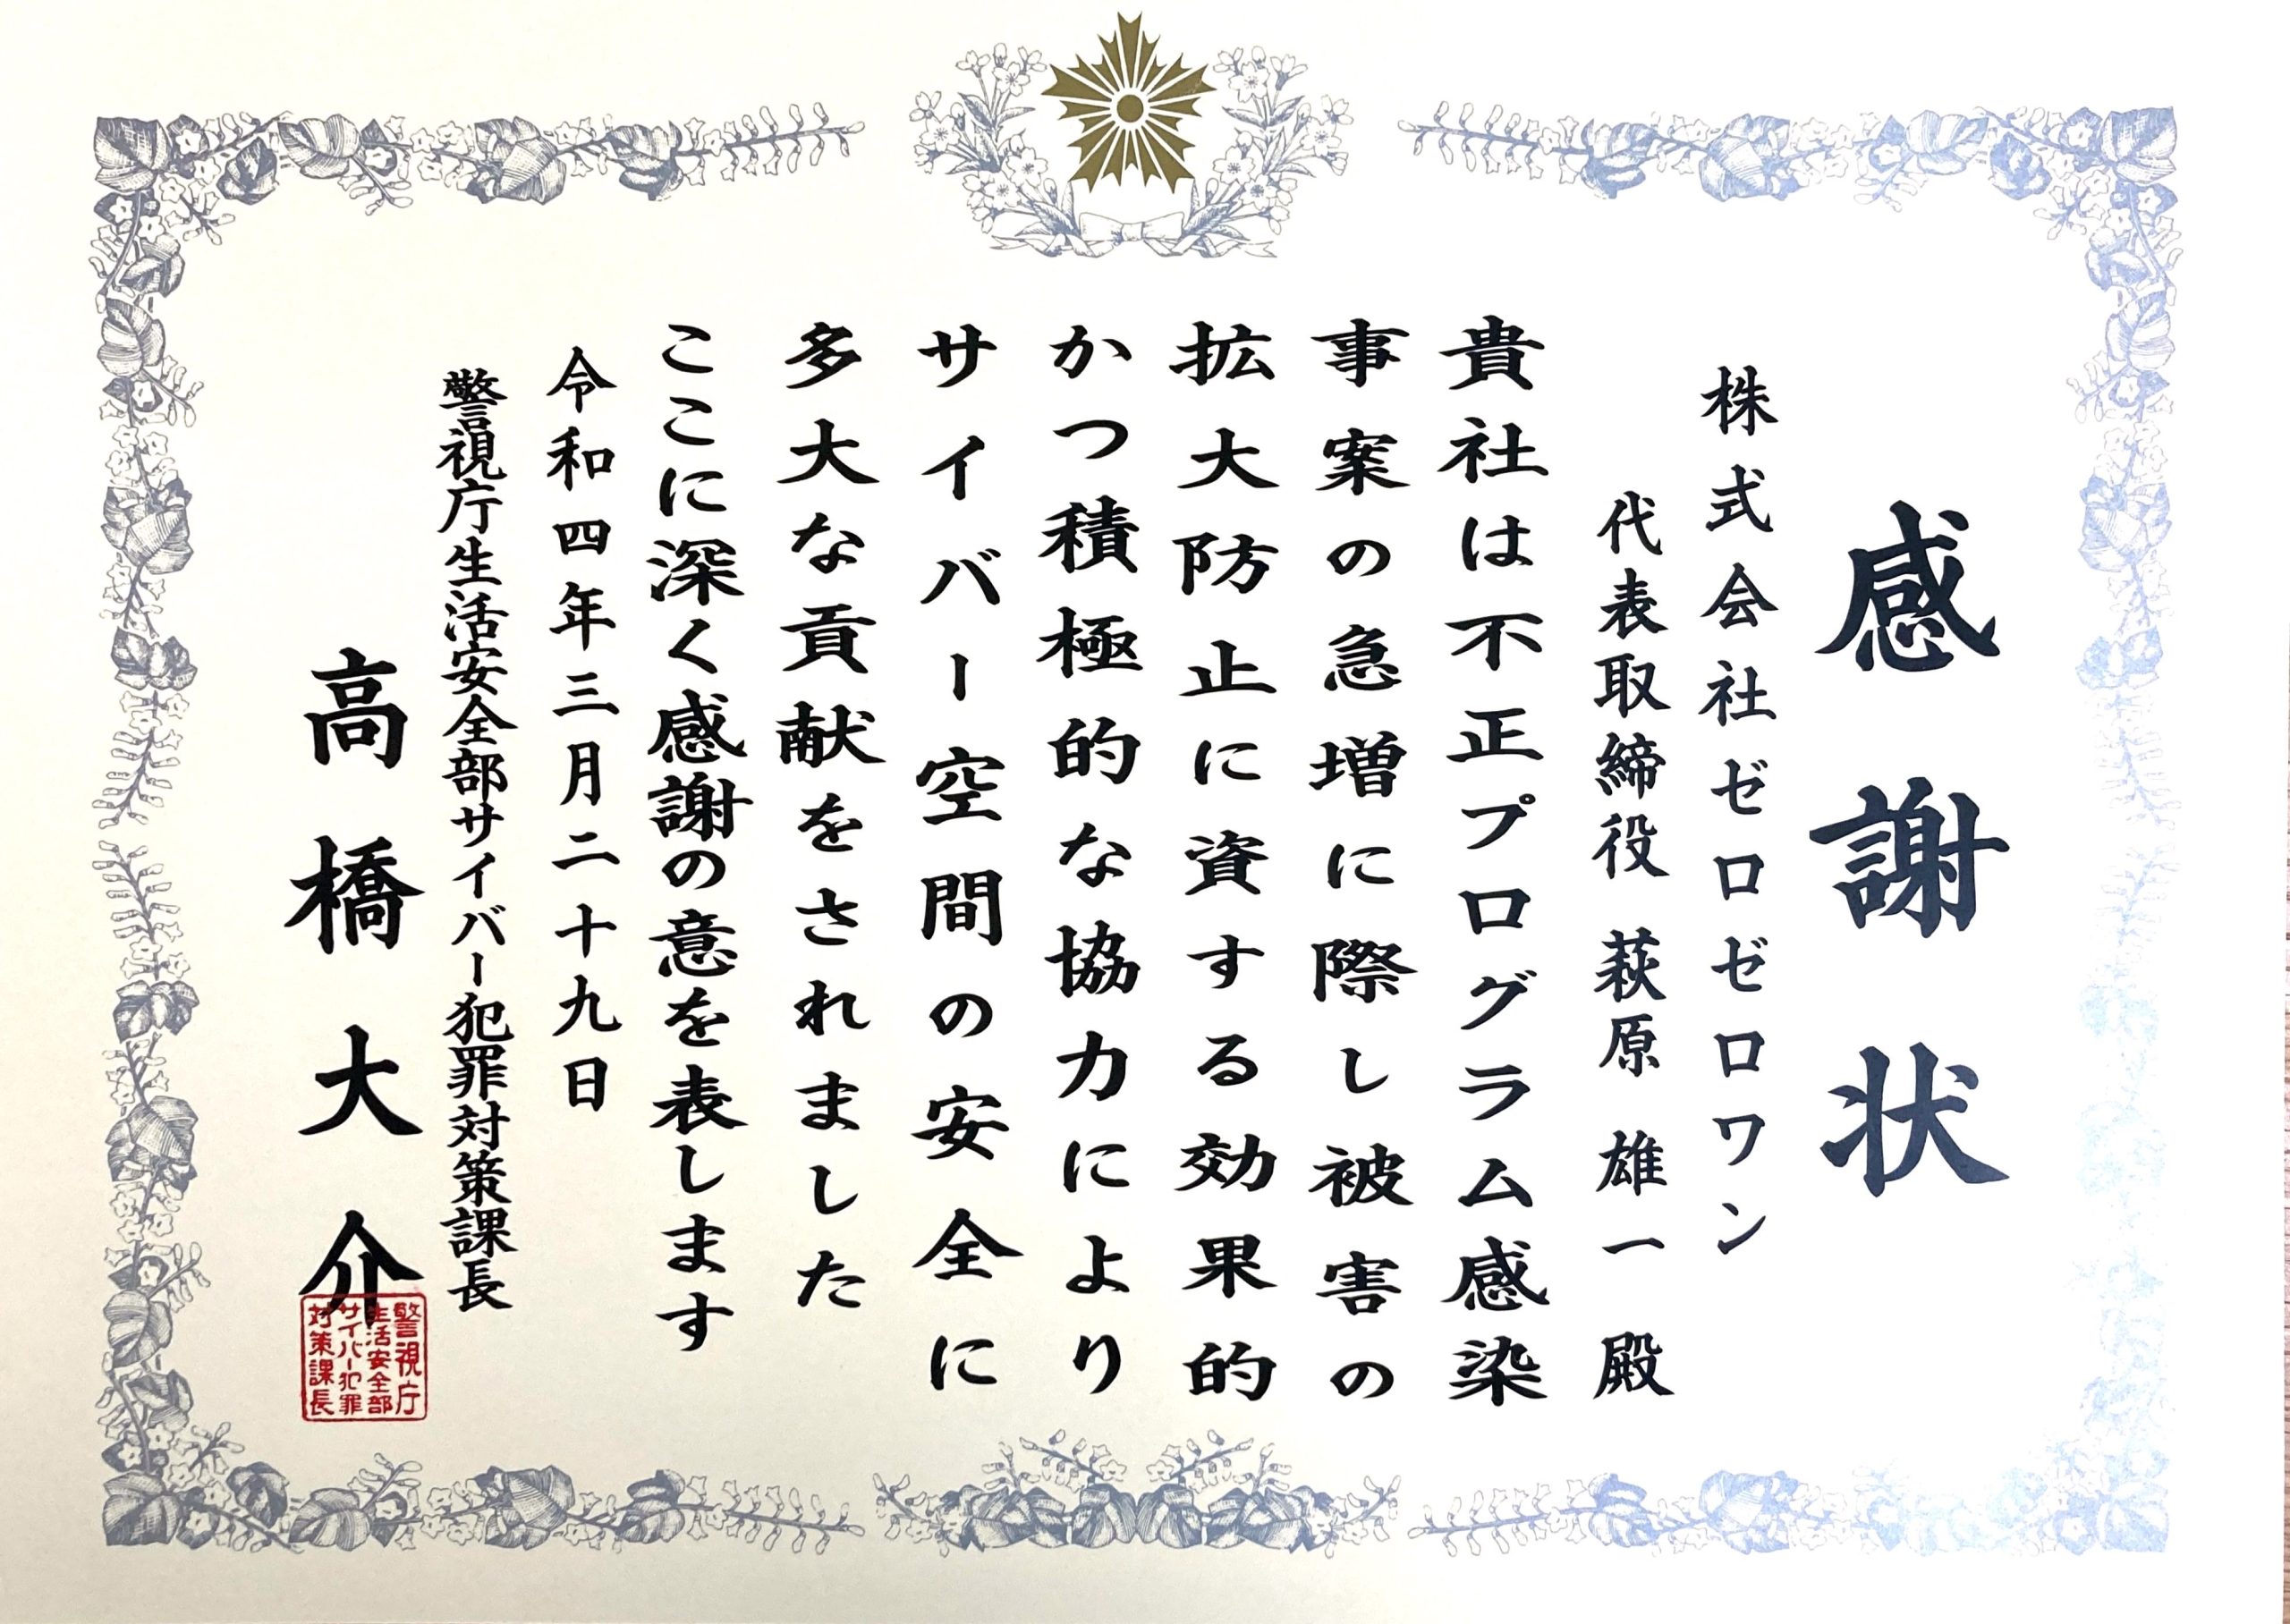 感謝状
株式会社ゼロゼロワン
代表取締役 萩原 雄一 殿
貴社は不正プログラム感染
事案の急増に際し被害の
拡大防止に資する効果的
かつ積極的な協力により
サイバー空間の安全に
多大な貢献をされました
ここに深く感謝の意を表します
令和四年三月二十九日
警視庁生活安全部サイバー犯罪対策課長
高橋大介
警視庁
生活安全部
サイバー犯罪
対策課長